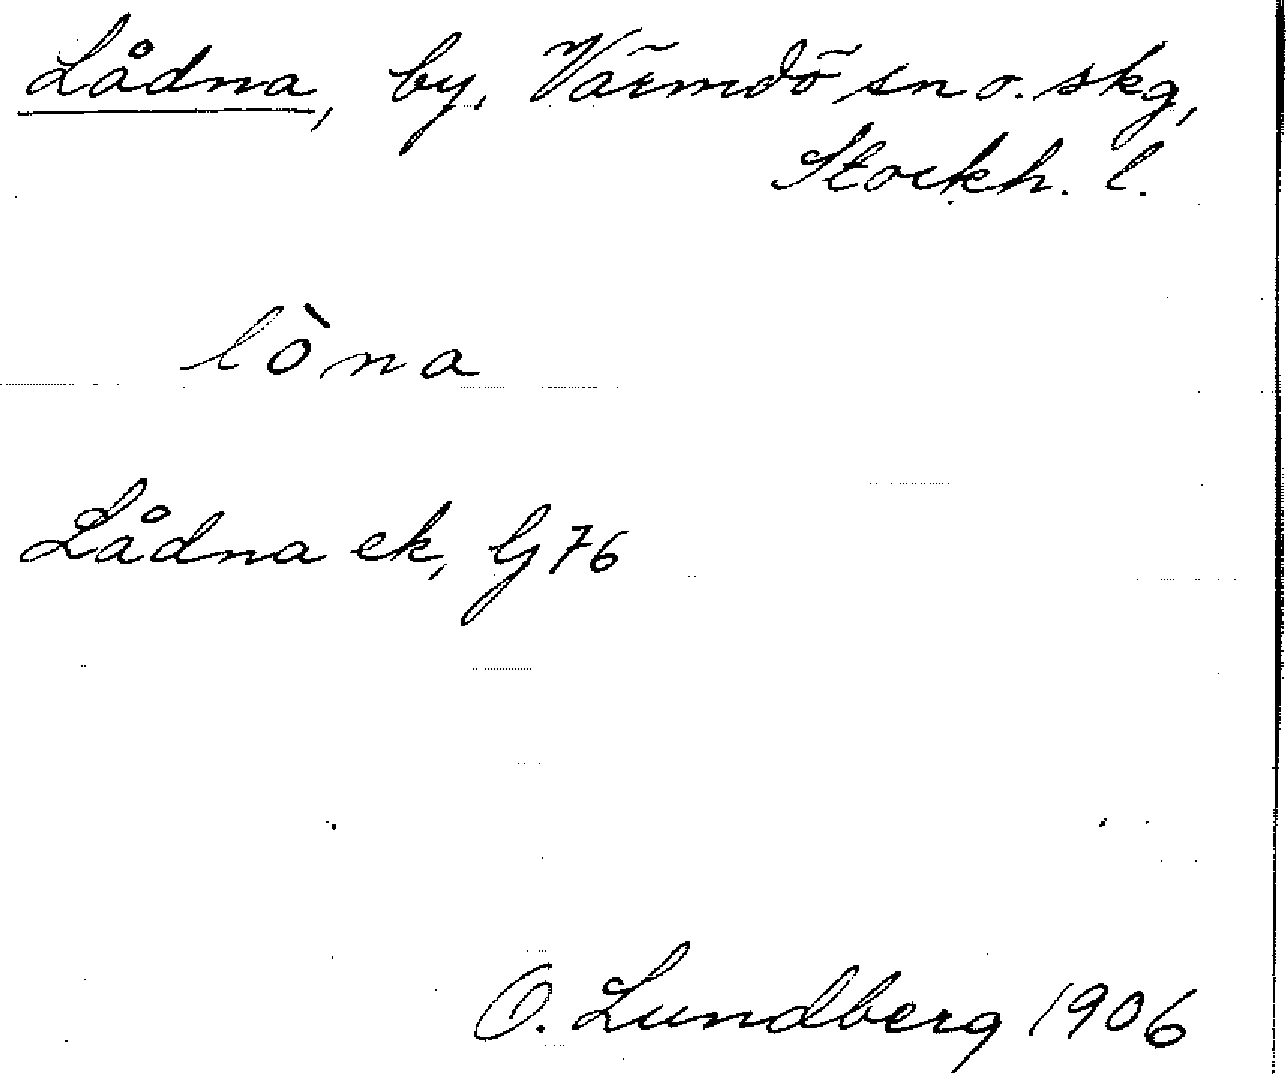 Lådna, by, Värmdö sn o. skg,
Stockh. l.
lòna
Lådna ek, Gj 76
O. Lundberg 1906